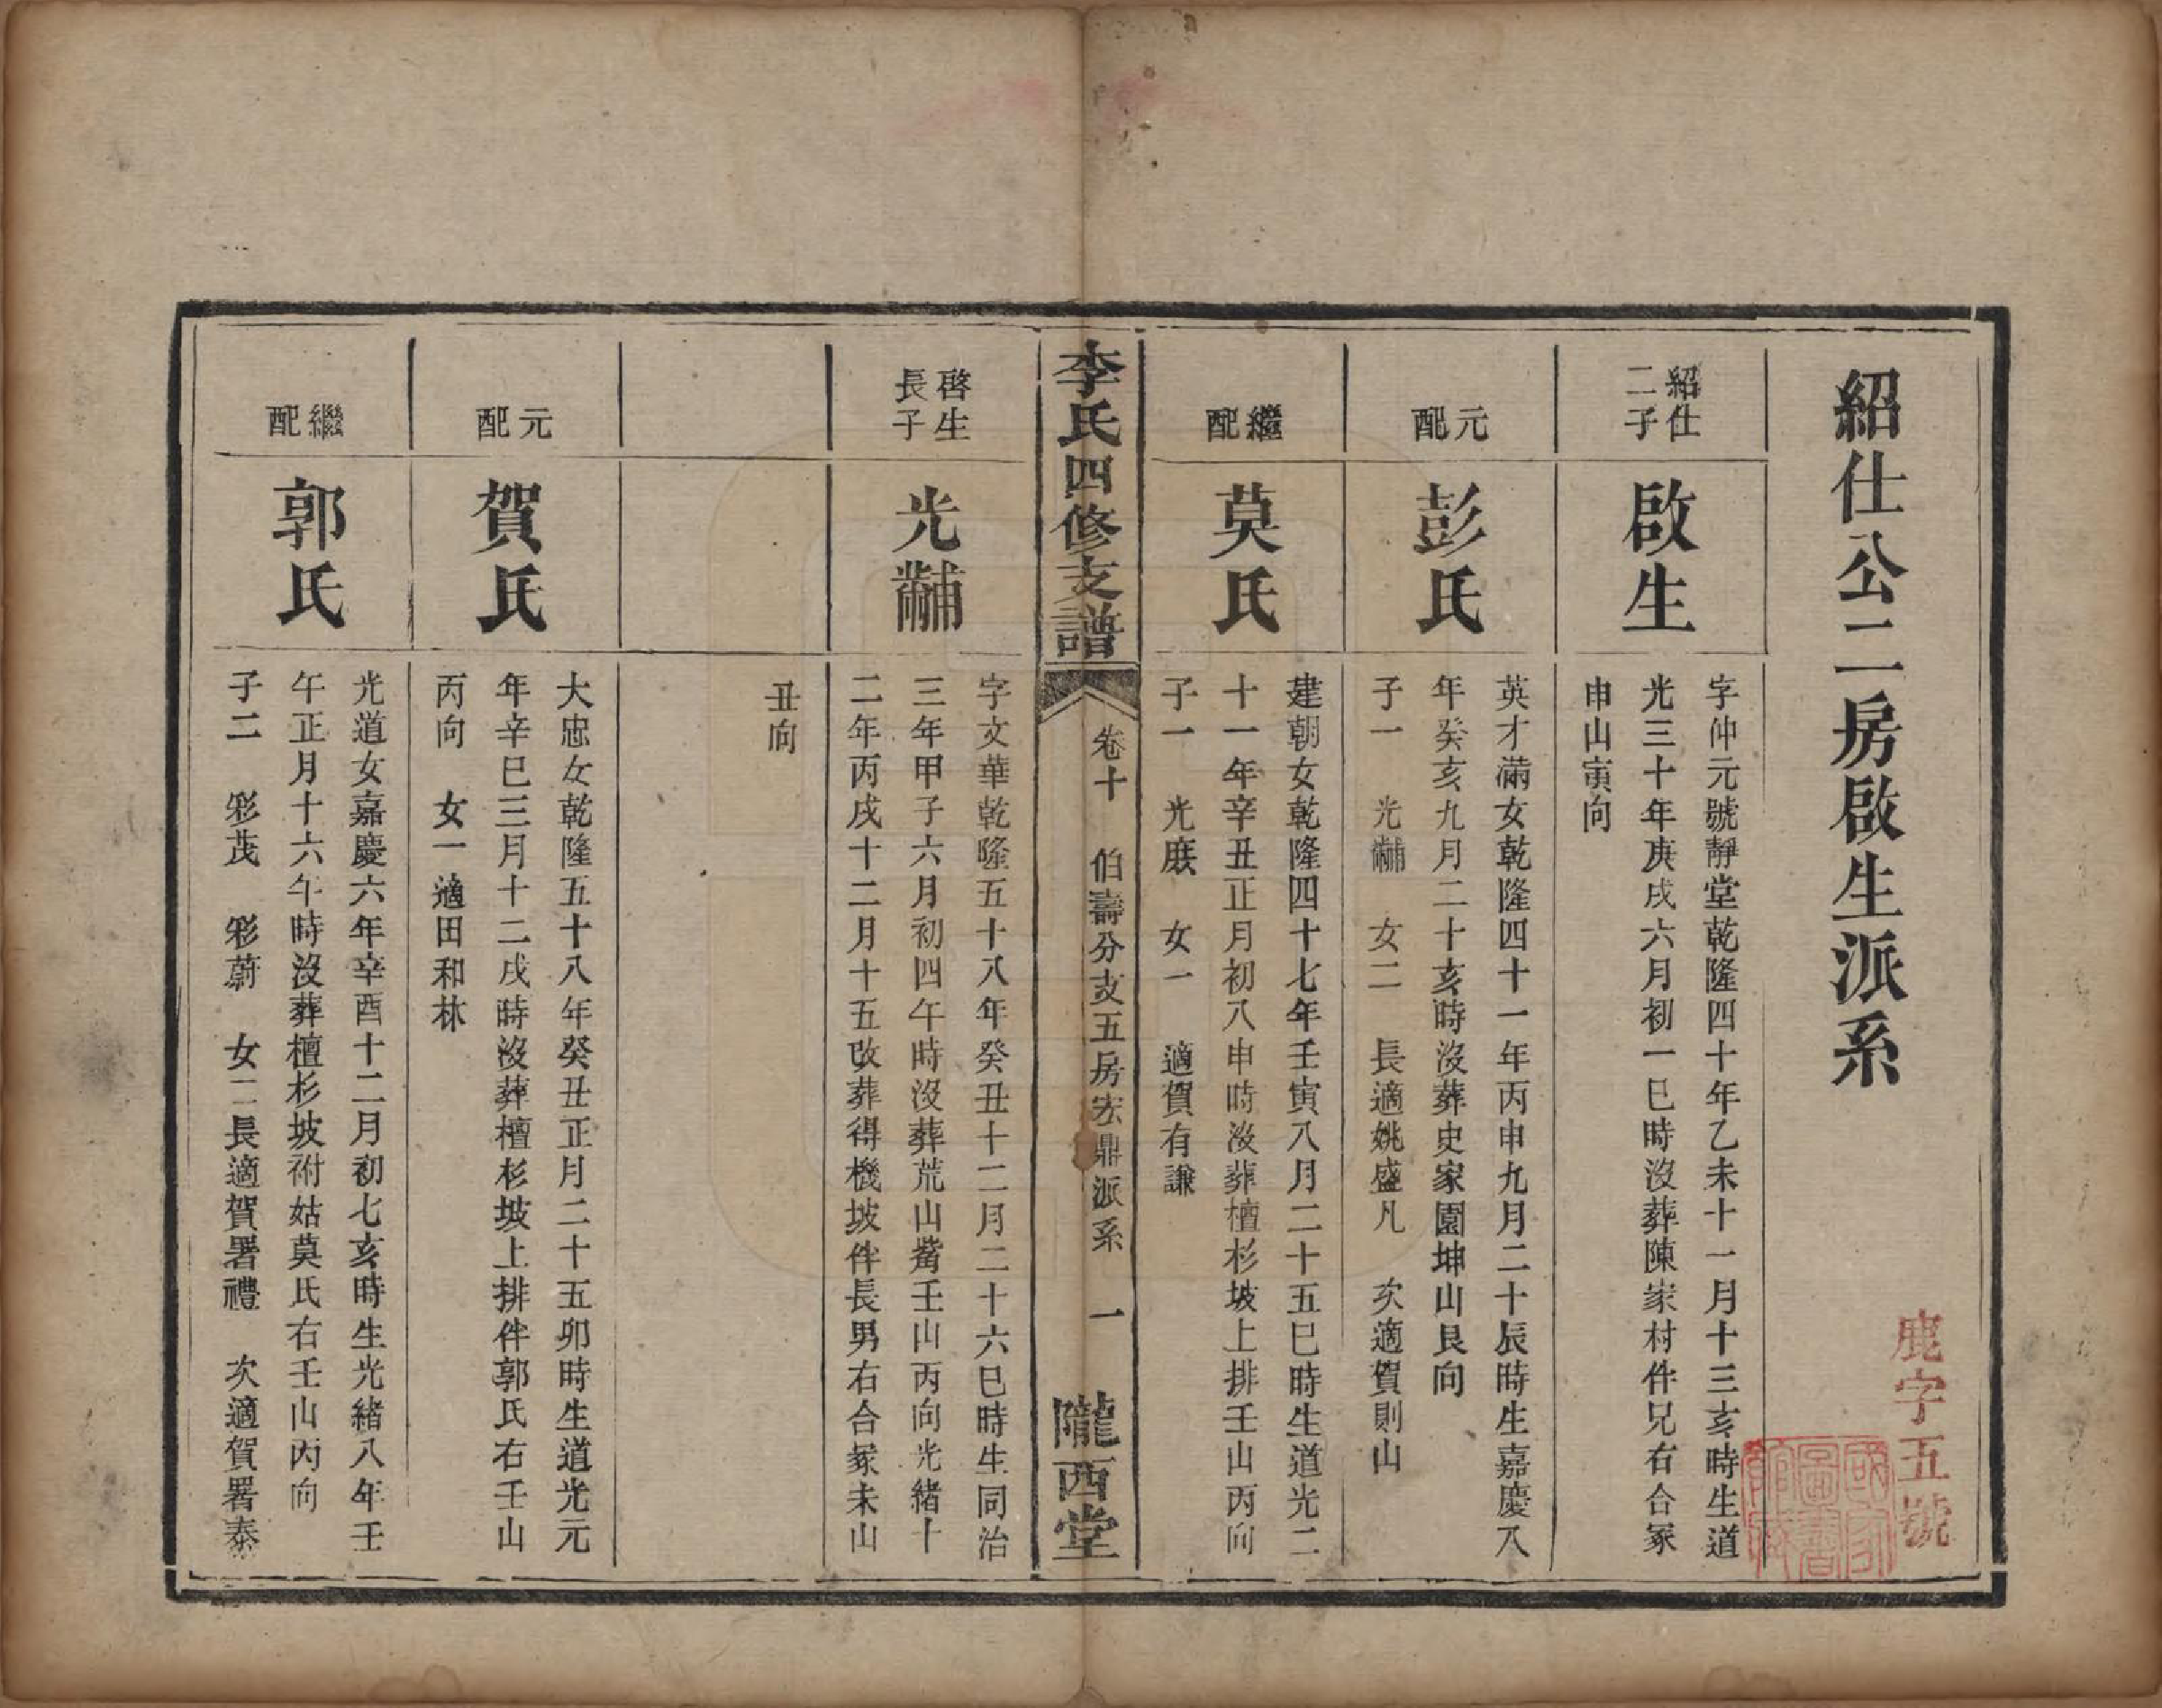 紹仕公二房啟生派系
鹿字五號
紹仕
二子
啟生
字仲元號靜堂乾隆四十年乙未十一月十三亥時生道
光三十年庚戌六月初一巳時沒葬陳家村伴兄右合冢
申山寅向
元配
彭氏
英才滿女乾隆四十一年丙申九月二十辰時生嘉慶八
年癸亥九月二十亥時沒葬史家園坤山艮向
子一 光黼 女二 長適姚盛凡 次適賀則山
繼配
莫氏
建朝女乾隆四十七年壬寅八月二十五巳時生道光二
十一年辛丑正月初八申時沒葬檀杉坡上排壬山丙向
子一 光黻 女一 適賀有謙
李氏四修支譜
卷十 伯壽分支五房宏鼎派系 一
隴西堂
啓生
長子
光黼
字文華乾隆五十八年癸丑十二月二十六巳時生同治
三年甲子六月初四午時沒葬荒山觜壬山丙向光緒十
二年丙戌十二月十五改葬得機坡伴長男右合冢未山
丑向
元配
賀氏
大忠女乾隆五十八年癸丑正月二十五卯時生道光元
年辛巳三月十二戌時沒葬檀杉坡上排伴郭氏右壬山
丙向 女一適田和林
繼配
郭氏
光道女嘉慶六年辛酉十二月初七亥時生光緒八年壬
午正月十六午時沒葬檀杉坡祔姑莫氏右壬山丙向
子二 彩茂 彩蔚 女二長適賀署禮 次適賀署泰